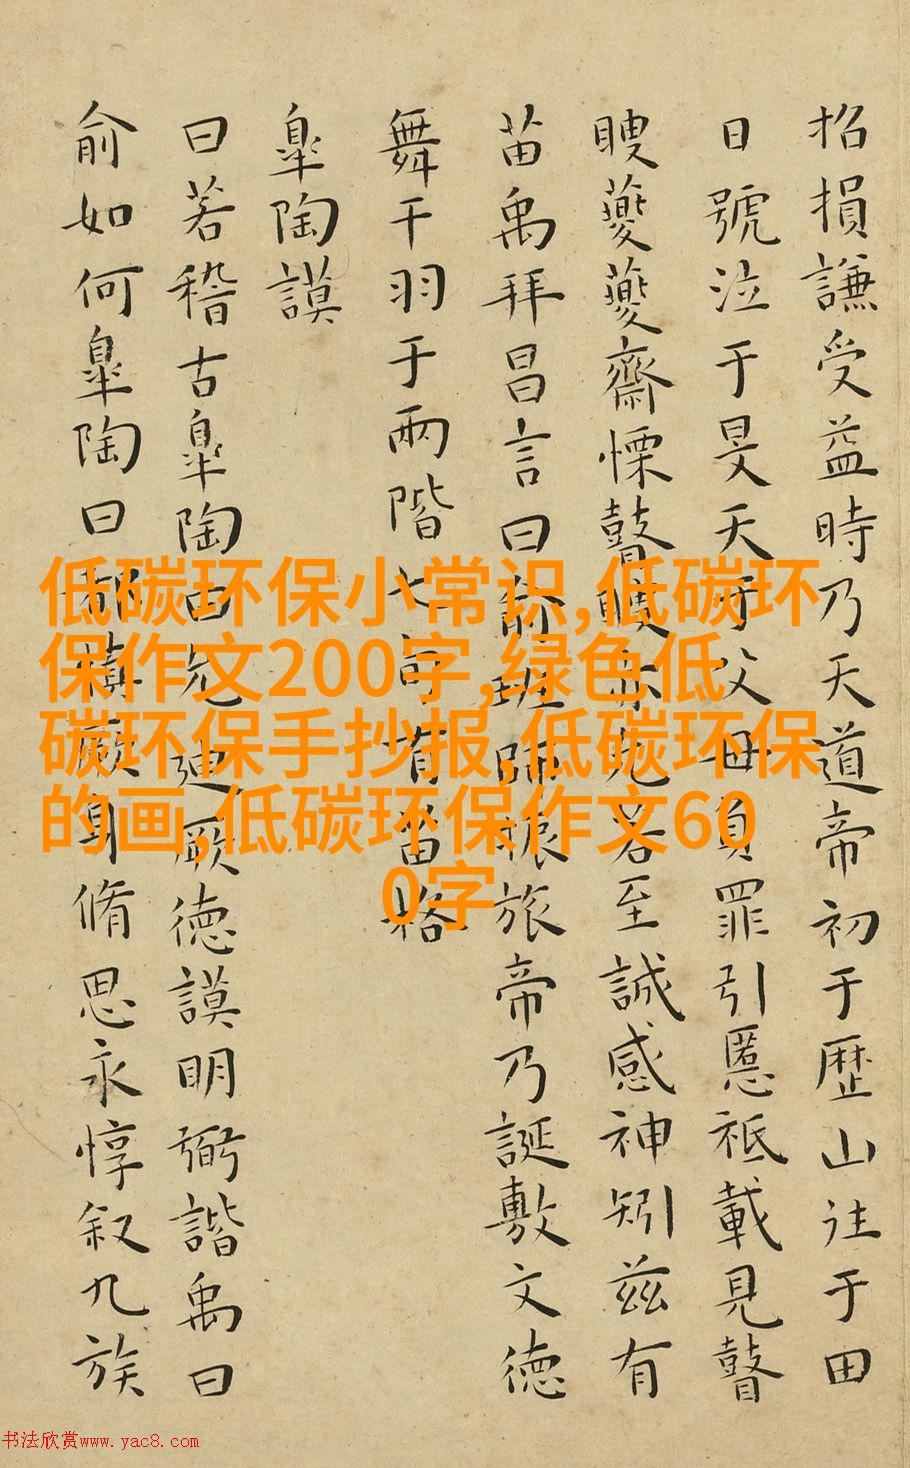 招損謙受益時乃天道帝初于歴山往于田
日號泣于旻天于父母負罪引慝祗載見瞽
瞍夔夔齋慄瞽瞍亦允若至諴感神矧茲有
苗禹拜昌言曰俞班師振旅帝乃誕敷文德
舞干羽于兩階七旬有苗格
皐陶謨
曰若稽古皐陶曰允迪厥德謨明弼諧禹曰
俞如何皐陶曰都慎厥身脩思永惇叙九族
低碳环保小常识,低碳环
保作文200字,绿色低
碳环保手抄报,低碳环保
的画,低碳环保作文60
0字
书法欣赏www.yac8.com